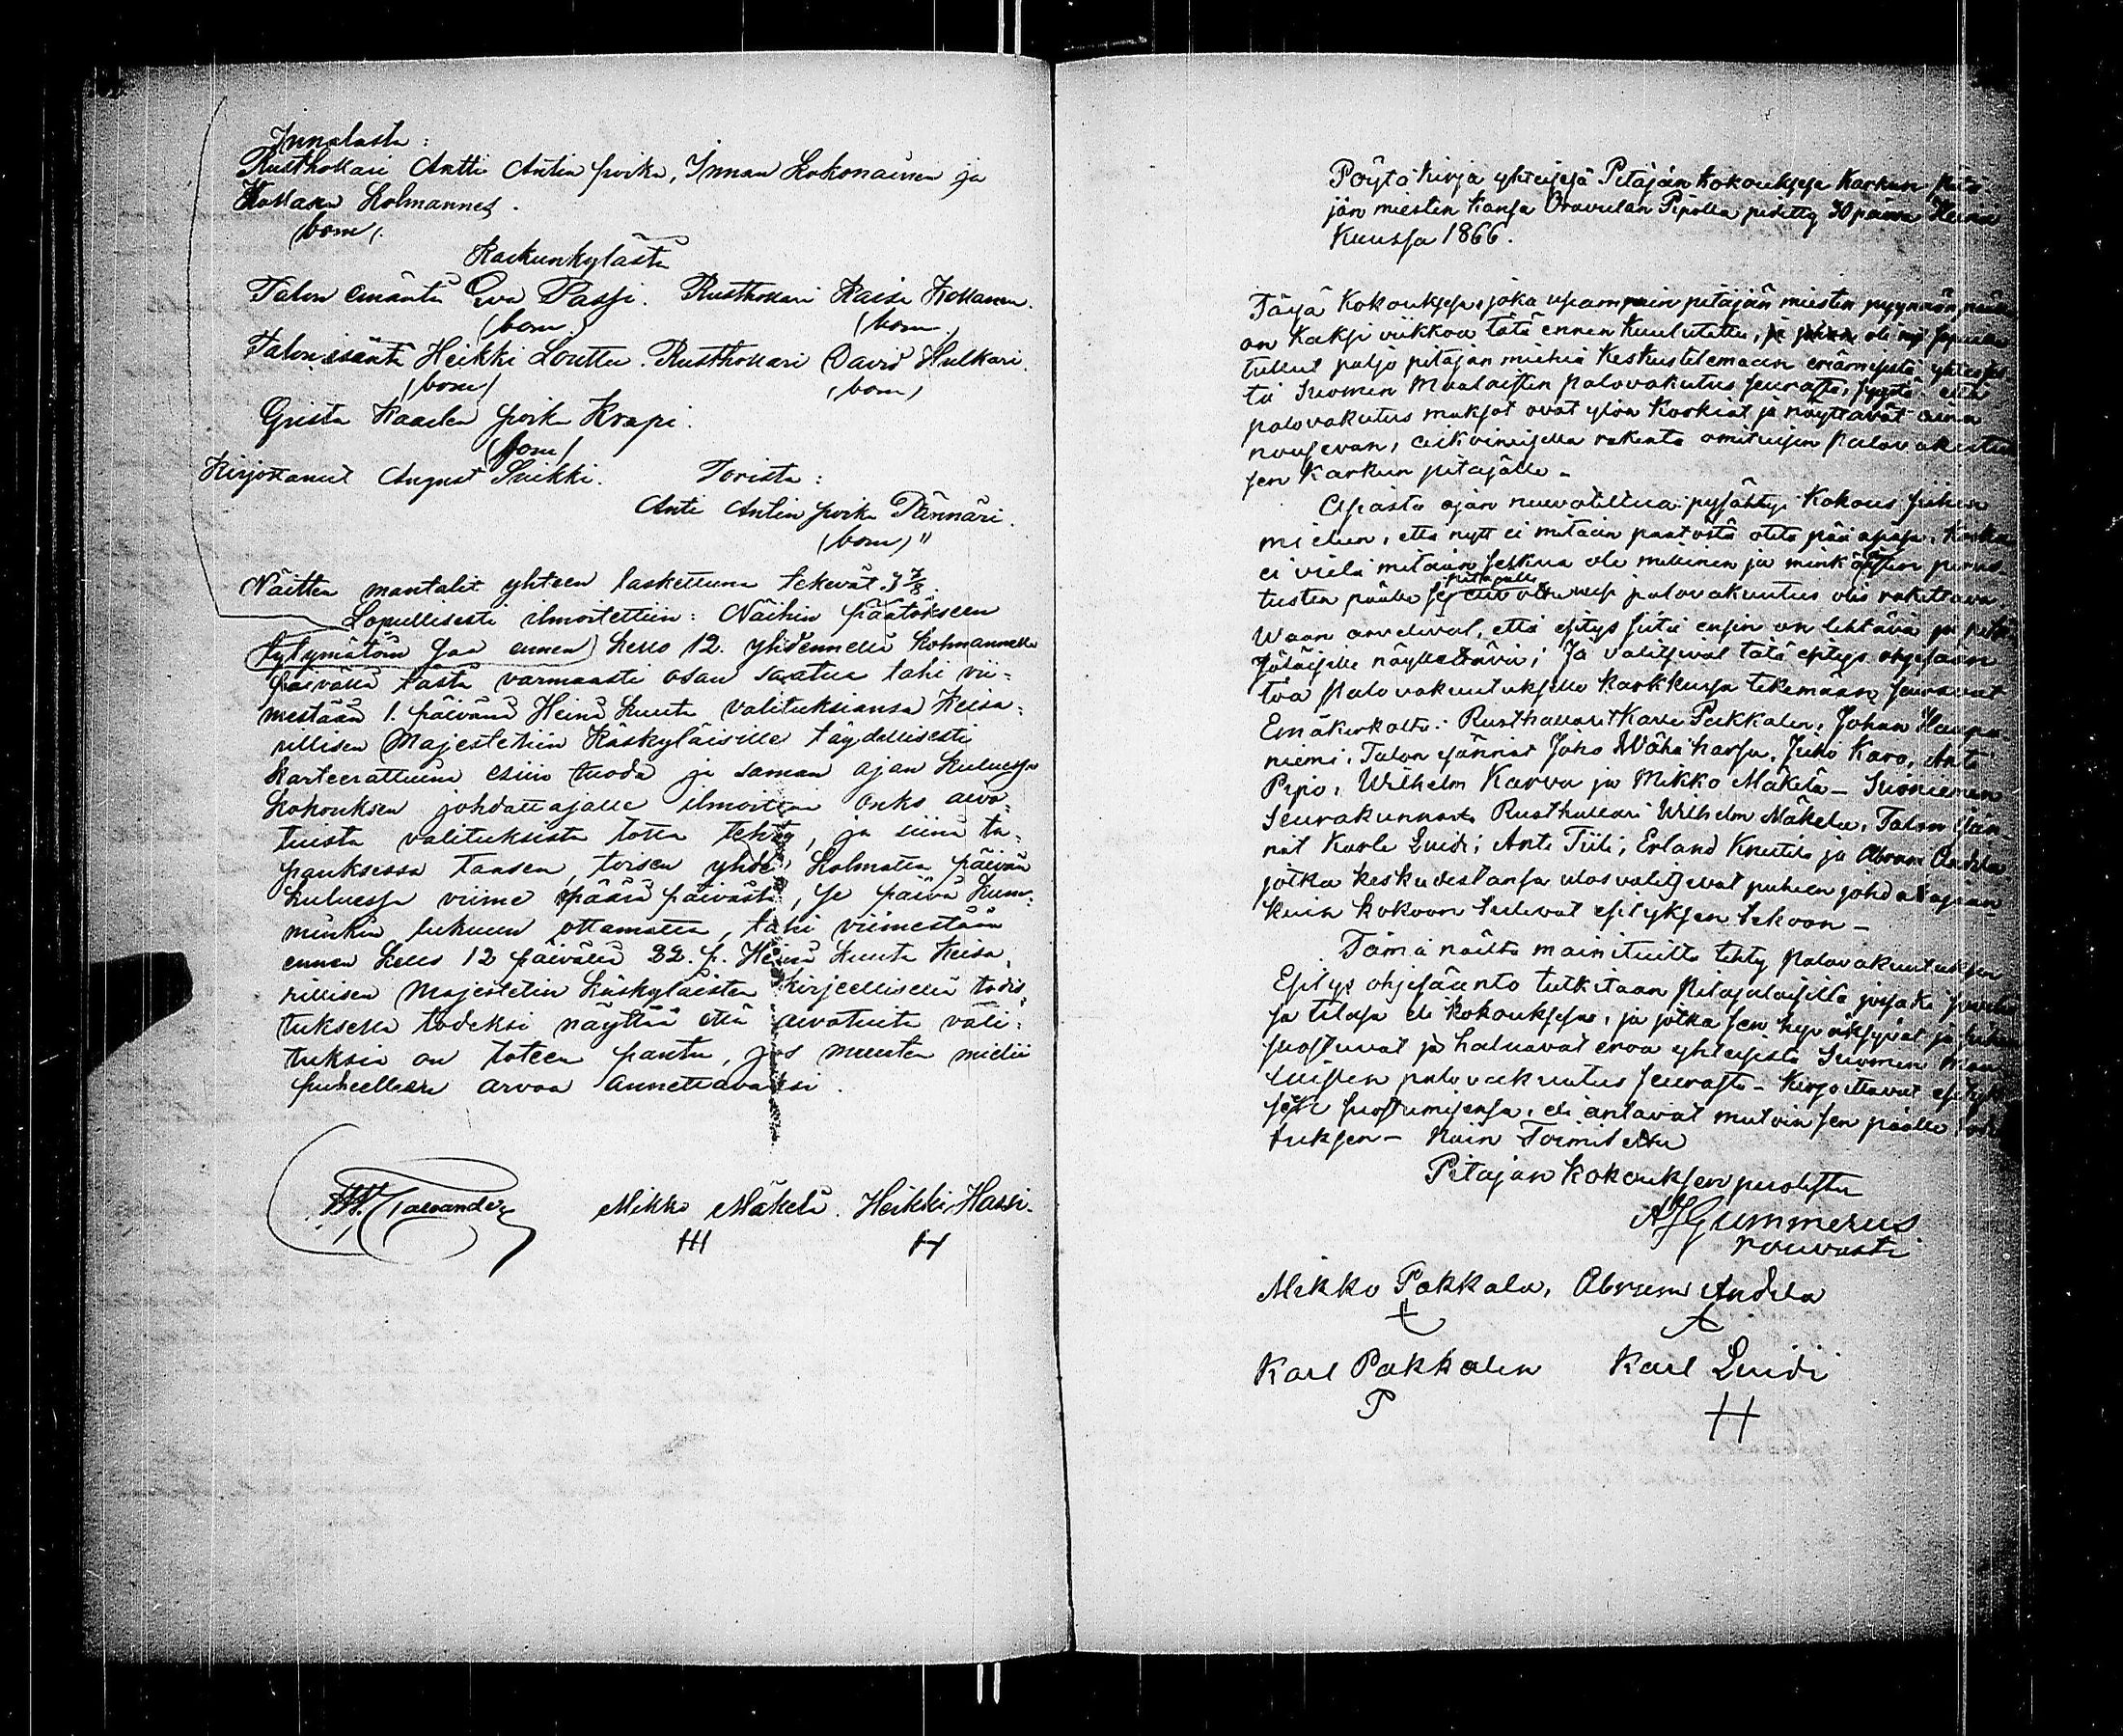 Innalasta:
Rusthollari Antti Antin poika, Innan Kokonainen ja
Kollasen Kolmannes.
(bom).
Karkunkylästä
Talon emäntä Eva Passi. Rusthollari Kaisa Kollanen.
(bom.) (bom.)
Talon isäntä Heikki Louttu. Rusthollari David Hulkari.
(bom) (bom)
Gusta Kaarlen poika Krapi.
(bom)
Kirjottanut August Suikki. Torista:
Anti Antin poika Pännäri.
(bom) "
Näitten mantalit yhteen laskettuna tekevät 3 7/8.
Lopullisesti ilmoitettiin: Näihin päätökseen
tytymätöin saa ennen kello 12. yhdennellä kolmannella
päivällä tästä varmaasti osan saatua tahi vii=
mestään 1. päivänä Heinä kuuta valituksiansa Keisa=
rillisen Majestetiin Käskyläiselle täydellisesti
karteerattuina esiin tuoda ja saman ajan kuluessa
kokouksen johdattajalle ilmoittaa onko aivo=
tuista valituksista totta tehty, ja siinä ta=
pauksessa taasen, toisen yhde kolmatta päivän
kuluessa viime määrä päivästä, se päivä kum=
minkin lukuun ottamatta, tahi viimestään
ennen kello 12 päivällä 22. p. Heinä kuuta Keisa=
rillisen Majestetin käskyläisten kirjeellisellä todis=
tuksella todeksi näyttää että aivotuita vali=
tuksia on toteen pantu, jos muuten mielii
puheellensa arvoa annettavaksi.
Mikko Mäkelä. Heikki Hassi.
Pöytäkirja yhteisesä Pitäjän kokouksesa Karkun Pitä
jän miesten kansa Oravulan Pipolla pidetty 30 päivä Heinä
kuussa 1866.
Täsä Kokouksesa, joka usiampain pitäjän miesten pyynnön
on kaksi viikkoa tätä ennen kuulutettu, oli
tullut paljo pitäjän miehiä keskustelemaan eriämisestä yhteises
tä Suomen Maalaisten palovakutus seurasta, syystä että
palovakutus maksot ovat ylön korkiat ja näyttävät aina
nousevan, aikoimisella rakenta omituisen Palovakutuk
sen Karkun pitäjälle –
Asiasta ajan neuvoteltua pysähtyi Kokous siihen
mieleen, että nytt ei mitään päätöstä oteta pää asiasa, koska
ei vielä mitään selkua ole millinen ja minkä perus
tusten päälle pitäjälle palovakuutus olis rakettava
Waan arvelivat, että esitys siitä ensin on tehtävä ja pitä
jäläisille näytettävä; Ja valitsivat tätä esitys ohjesään
töä Palovakuutukselle Karkkusa tekemään seuraavat
Emäkirkolta: Rusthallarit Karle Pakkalen, Johan Haapa
niemi, Talon isännät Joho Wähä hansu, Juho Karo, Anti
Pipo, Wilhelm Karvu ja Mikko Mäkelä – Suoniemen
Seurakunnasta Rusthallari Wilhelm Mäkela, Talon isän
nät Karle Luidi, Anti Tiili, Erland Knuutila ja Abram Andela
jotka keskudestansa ulosvalitsevat puheen johdatajan
kuin kokoon tulevat esityksen tekoon –
Tämä näiltä mainituilta tehty Palovakuutuksen
Esitys ohjesäänto tutkitaan Pitäjäläisillä
ja tilasa eli kokouksesa, ja jotka sen hyväksyvät ja
suostuvat ja haluavat erota yhteisistä Suomen Maa
laisten palovakuutus seurasta – kirjottavat esityk
selle suostumisensa, eli antavat mutoin sen päälle todis
tuksen – Näin Toimitettu
Pitäjän kokouksen puolesta
A J Gummerus
rouvasti
Mikko Pakkala, Abram Andela
Karl Pakkalen Karl Luidi
P H